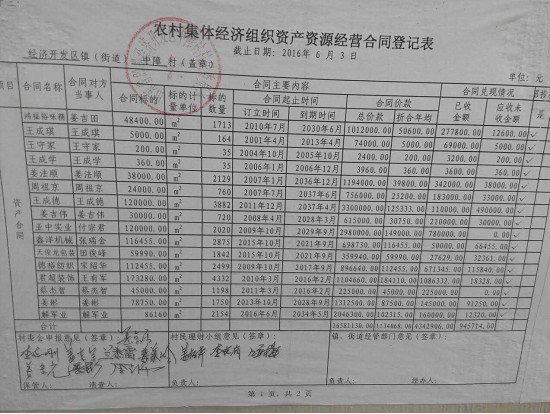 农村集体经济组织资产资源经营合同登记表
截止日期：2016年6月3日
经济开发区镇（街道）中障村（盖章）
单位：元
项目 合同名称 合同对方当事人 合同主要内容 合同兑现情况
合同标的 标的计量单位 标的数量 合同起止时间 合同价款 已收金额 应收未收金额
订立时间 到期时间 总价款 折合年均
资产合同
鸿福裕味糖 姜吉田 48400.00 m² 1713 2010年7月 2030年6月 1012000.00 50600.00 277800.00 12600.00
王成琪 王成琪 5000.00 m² 164 2001年4月 2013年4月 74000.00 5000.00 69000.00 5000.00
王守家 王守家 200.00 m² 35 2004年10月 2005年10月 2400.00 200.00 3200.00 200.00
王成学 王成学 360.00 m² 35 2006年1月 2006年12月 3960.00 360.00 3600.00 360.00
姜法顺 姜法顺 38000.00 m² 2129 2007年1月 2036年12月 1194000.00 39800.00 342000.00 38000.00
周祖京 周祖京 24000.00 m² 760 2007年7月 2037年6月 756000.00 25200.00 183000.00 33000.00
王成德 王成德 120000.00 m² 3882 2011年12月 2037年4月 3300000.00 125333.00 110000.00 490000.00
姜吉伟 姜吉伟 30000.00 m² 720 2008年4月 2028年3月 615000.00 30750.00 210000.00 30000.00
正中实业 付宗君 120000.00 m² 2020 2009年10月 2029年9月 2980000.00 149000.00 780000.00 0.00
鑫洋机械 张瑞金 116455.00 m² 2875 2015年10月 2021年9月 698730.00 116455.00 50000.00 66455.00
田俊峰 59990.00 m² 1842 2015年10月 2021年9月 359840.00 59990.00 27629.00 32361.00
德裕纺织 宋绍华 112455.00 m² 2499 2009年10月 2017年9月 896640.00 112455.00 671345.00 115840.00
君超装饰 王有军 173280.00 m² 4332 2010年3月 2016年2月 1104660.00 184110.00 1086332.00 18328.00
蔡杰智 蔡杰智 45000.00 m² 1198 2011年3月 2016年2月 225000.00 45000.00 225000.00 0.00
姜彬 姜彬 78750.00 m² 1750 2013年10月 2028年9月 1312500.00 87500.00 145000.00 91250.00
解军业 解军业 86160 m² 2154 2016年6月 2034年5月 2046300.00 102315.00 160000.00 12320.00
合计 16581130.00 1134068.00 4342906.00 945714.00
村委会申报意见（签章）： 村民理财小组意见（签章）： 镇、街道经管部门意见（签章）：
保管人： 清查人： 负责人： 负责人：
第1页，共2页